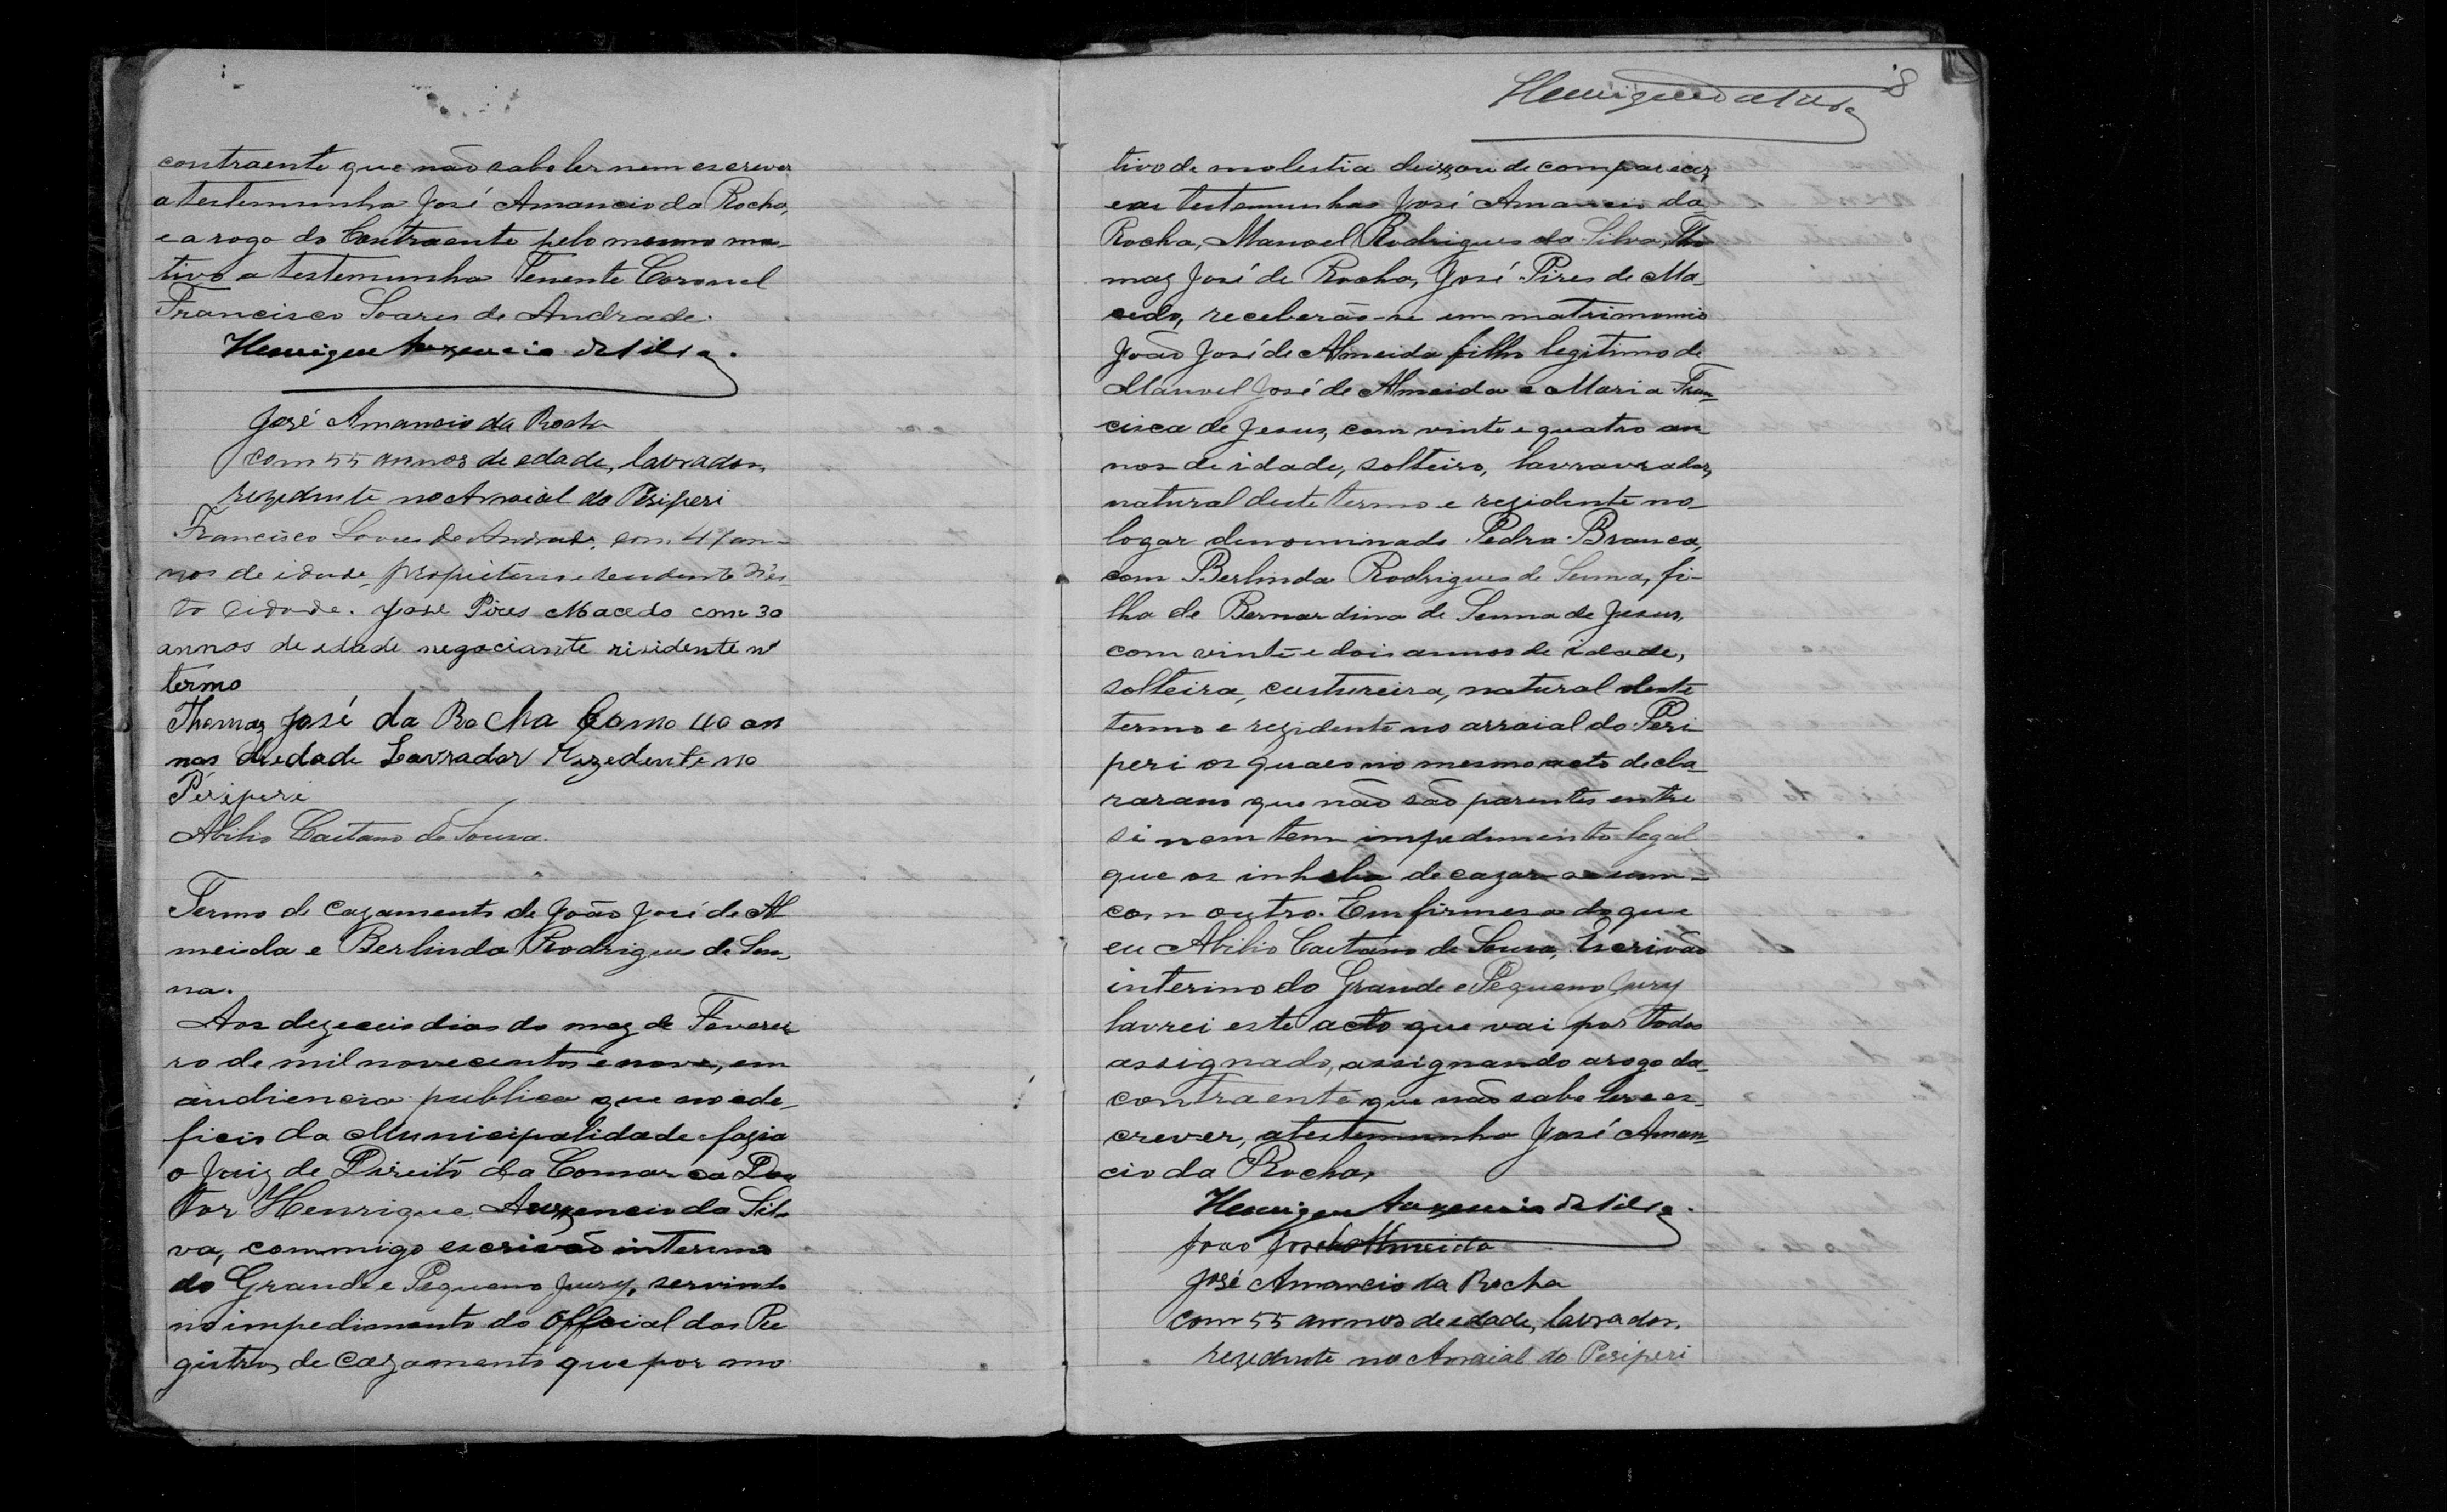 contraente que não sabe ler nem escrever
a testemunha José Amancio da Rocha,
e a rogo do Contraente pelo mesmo mo-
tivo a testemunha Tenente Coronel
Francisco Soares de Andrade.
Henrique Auxencio da Silva.
José Amancio da Rocha
com 55 annos de edade, lavrador,
rezedente no Arraial do Periperi
Francisco Soares de Andrade, com 47 an-
nos de idade, propietario e residente nes-
ta Cidade. José Pires Macedo com 30
annos de edade negociante risidente n'
termo
Thomaz José da Rocha Como 40 an
nos de edade Lavrador Rezedente no
Periperi
Abilio Caetano de Sousa.
Termo de Cazamento de João José de Al
meida e Berlinda Rodrigues de Sen-
na.
Aos dezeceis dias do mez de Feverei
ro de mil novecentos e nove, em
audiencia publica que no ede-
ficio da Municipalidade fazia
o Juiz de Direito da Comarca Dou
tor Henrique Auxencio da Sil-
va, commigo escrivão interino
do Grande e Pequeno Jury, servindo
no impedimento do Official dos Re
gistros de Cazamento que por mo
8
Henrique da Silva
tivo de molestia deixou de comparecer,
e as testemunhas José Amancio da
Rocha, Manoel Rodrigues da Silva, Tho
maz José de Rocha, José Pires de Ma-
cedo, receberão-se em matrimonio
João José de Almeida filho legitimo de
Manoel José de Almeida e Maria Fran-
cisca de Jesus, com vinte e quatro an
nos de idade, solteiro, lavravrador,
natural deste termo e rezidente no
logar denominado Pedra Branca,
com Berlinda Rodrigues de Senna, fi-
lha de Bernardina de Senna de Jesus,
com vinte e dois annos de idade,
solteira, custureira, natural deste
termo e rezidente no arraial do Peri-
peri os quaes no mesmo acto decla-
raram que não são parentes entre
si nem tem impedimento legal
que os inhaba de cazar-se um
com outro. Em firmesa do que
eu Abilio Caetano de Sousa, Escrivão
interino do Grande e Pequeno Jury
lavrei este acto que vai por todos
assignado, assignando arogo da
contraente que não sabe ler e es-
crever, a testemunha José Aman-
cio da Rocha,
Henrique Auxencio da Silva.
João José de Almeida
José Amancio da Rocha
com 55 annos de edade, lavrador,
rezedente no Arraial do Periperi